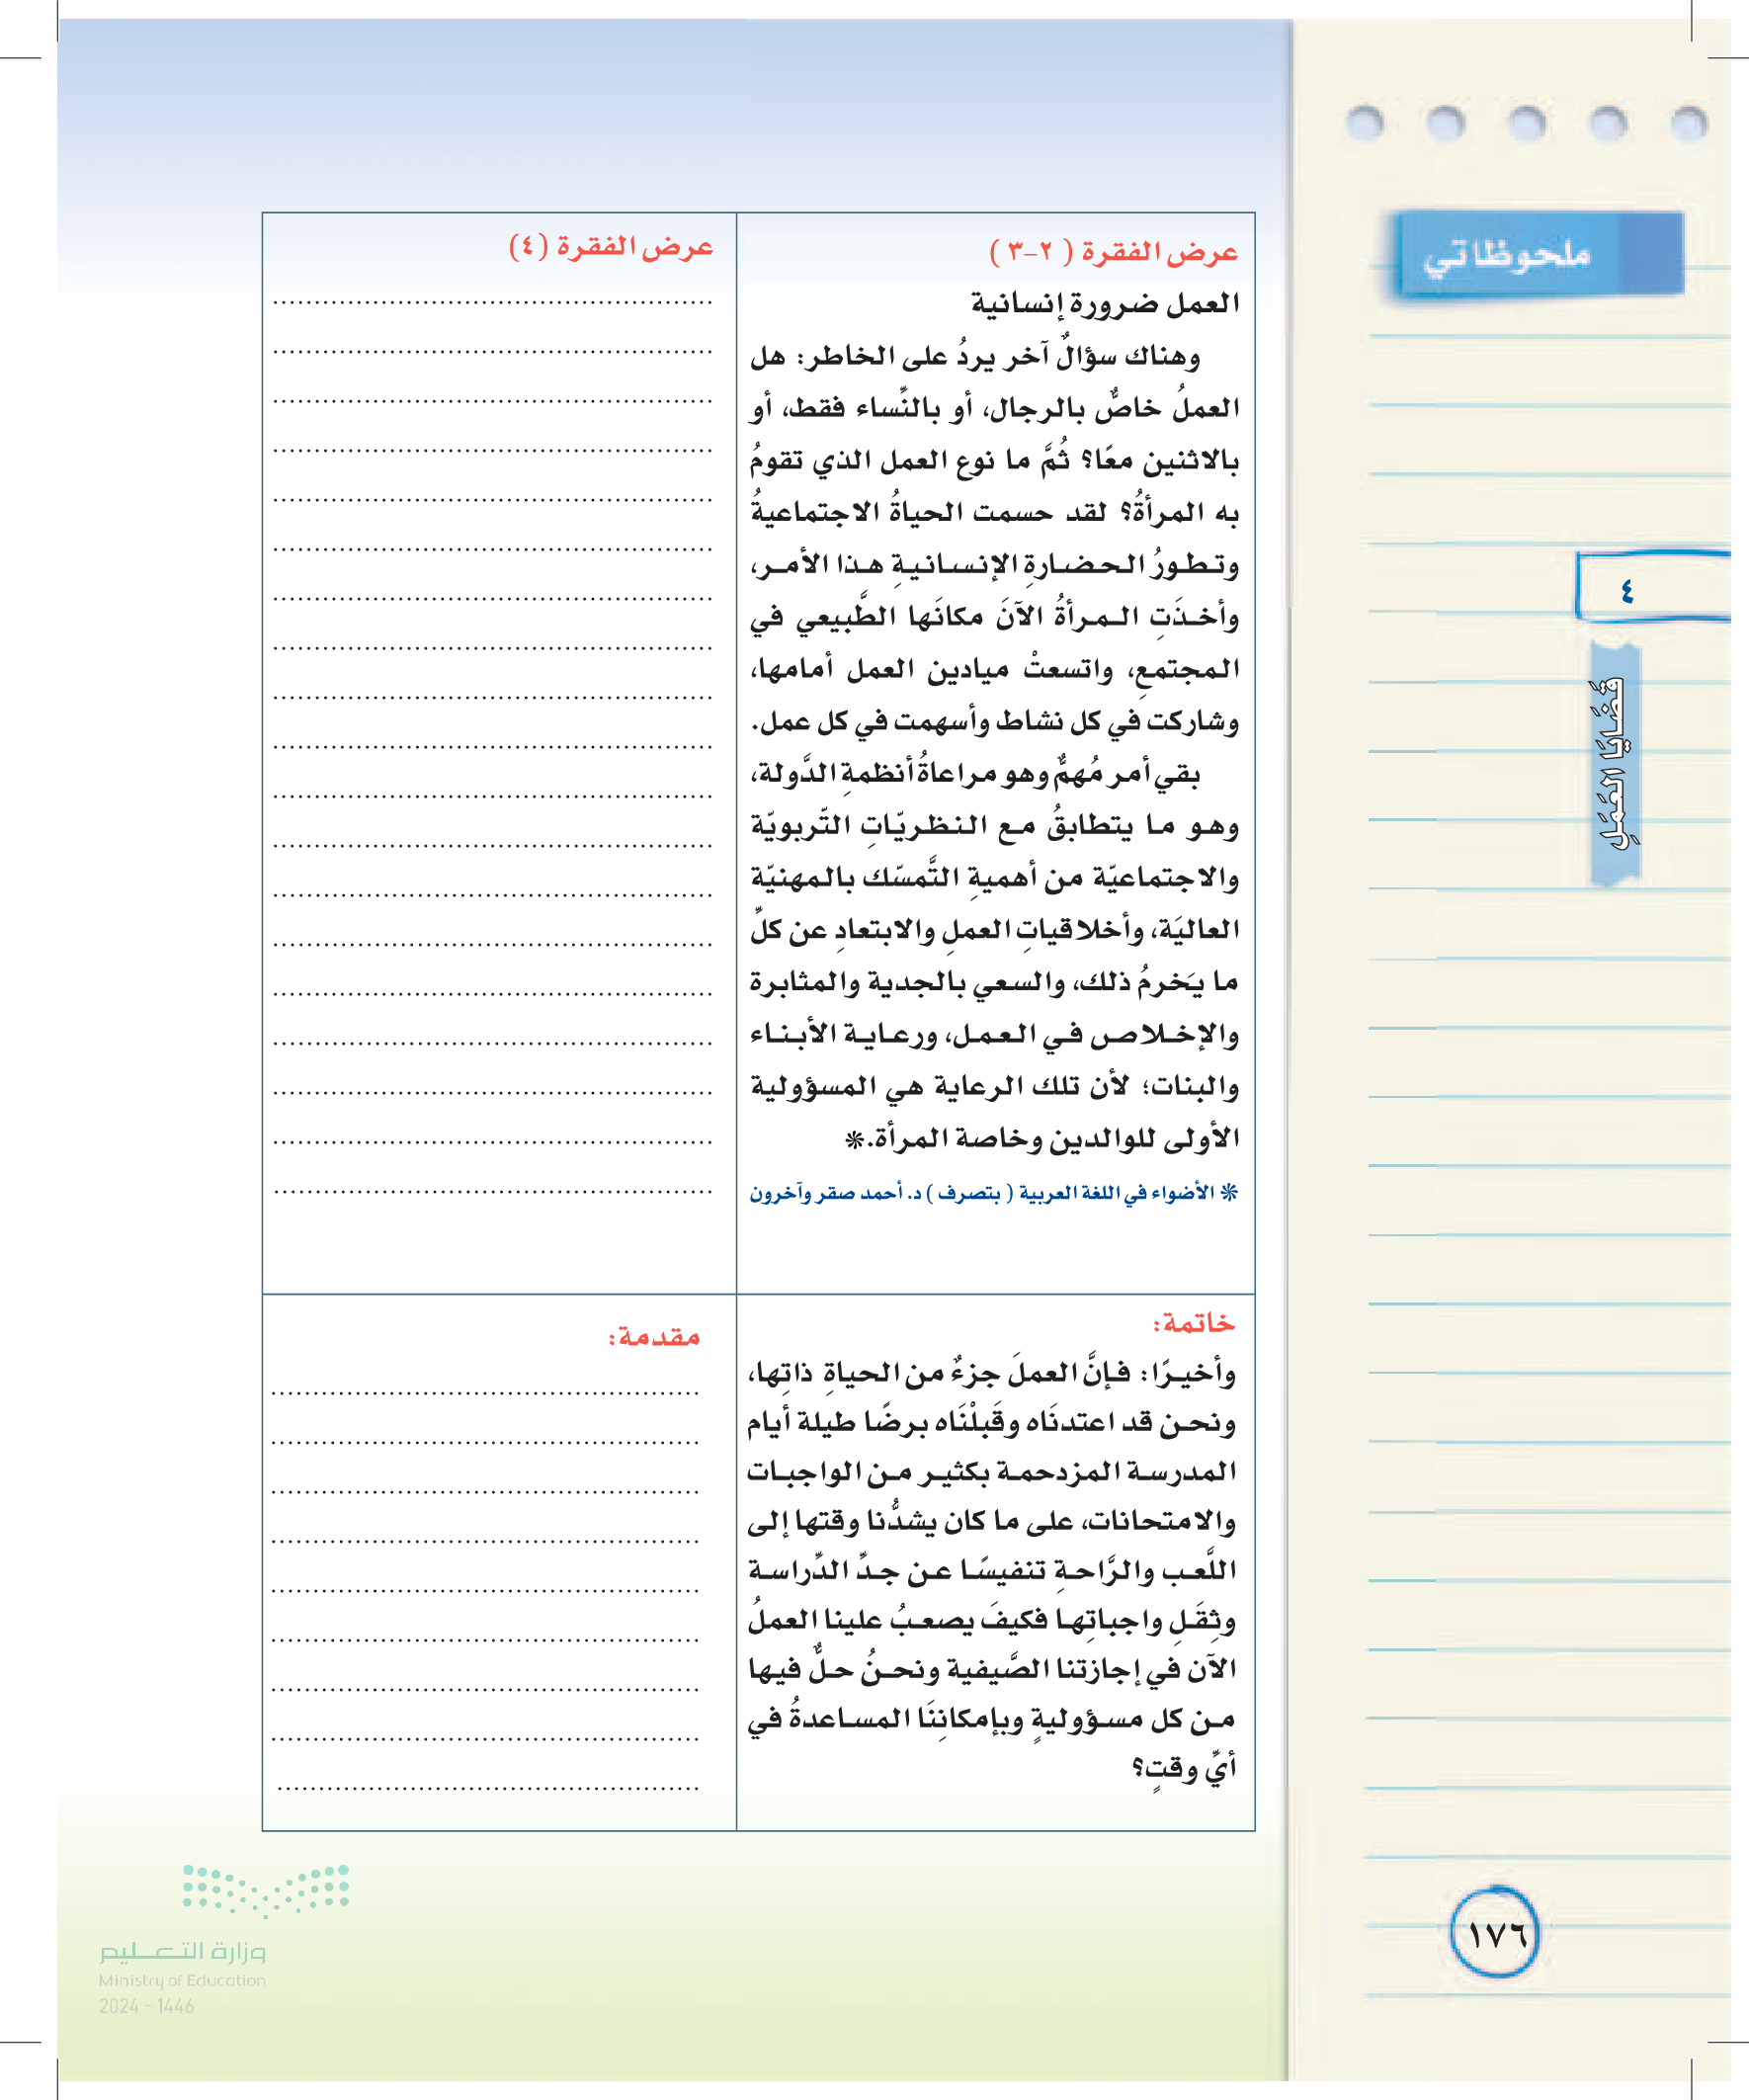 ملحوظاتي
٤
قَضَايَا العَمَلِ
عرض الفقرة ( ٢-٣ )
العمل ضرورة إنسانية
وهناك سؤالٌ آخر يردُ على الخاطر: هل
العملُ خاصٌّ بالرجال، أو بالنِّساء فقط، أو
بالاثنين معًا؟ ثُمَّ ما نوع العمل الذي تقومُ
به المرأةُ؟ لقد حسمت الحياةُ الاجتماعيةُ
وتطورُ الحضارةِ الإنسانيةِ هذا الأمر،
وأخذَتِ المرأةُ الآنَ مكانَها الطَّبيعي في
المجتمعِ، واتسعتْ ميادين العمل أمامها،
وشاركت في كل نشاط وأسهمت في كل عمل.
بقي أمر مُهمٌّ وهو مراعاةُ أنظمةِ الدَّولة،
وهو ما يتطابقُ مع النظريّاتِ التّربويّة
والاجتماعيّة من أهميةِ التَّمسّك بالمهنيّة
العاليَة، وأخلاقياتِ العملِ والابتعادِ عن كلِّ
ما يَخرمُ ذلك، والسعي بالجدية والمثابرة
والإخلاص في العمل، ورعاية الأبناء
والبنات؛ لأن تلك الرعاية هي المسؤولية
الأولى للوالدين وخاصة المرأة.❊
❊ الأضواء في اللغة العربية ( بتصرف ) د. أحمد صقر وآخرون
عرض الفقرة (٤)
خاتمة:
وأخيرًا: فإنَّ العملَ جزءٌ من الحياةِ ذاتِها،
ونحن قد اعتدنَاه وقَبلْنَاه برضًا طيلة أيام
المدرسة المزدحمة بكثير من الواجبات
والامتحانات، على ما كان يشدُّنا وقتها إلى
اللَّعب والرَّاحةِ تنفيسًا عن جدِّ الدِّراسة
وثِقَلِ واجباتِها فكيفَ يصعبُ علينا العملُ
الآن في إجازتنا الصَّيفية ونحنُ حلٌّ فيها
من كل مسؤوليةٍ وبإمكانِنَا المساعدةُ في
أيِّ وقتٍ؟
مقدمة:
وزارة التعليم
Ministry of Education
2024 - 1446
١٧٦